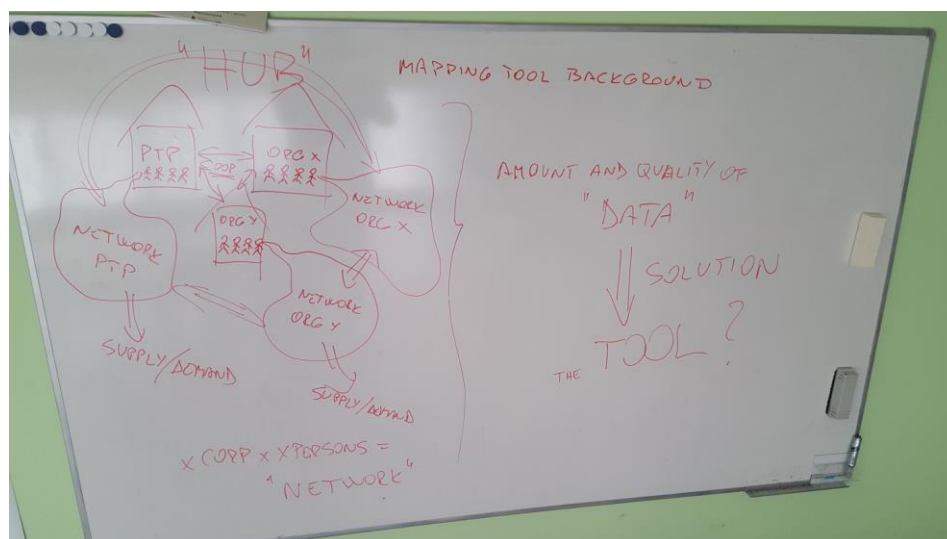 "HUB"
MAPPING TOOL BACKGROUND
PTP
ORG X
COOP
ORG Y
NETWORK
PTP
NETWORK
ORG X
NETWORK
ORG Y
SUPPLY/DEMAND
SUPPLY/DEMAND
X CORP X XPERSONS =
"NETWORK"
AMOUNT AND QUALITY OF
"DATA"
SOLUTION
THE TOOL?